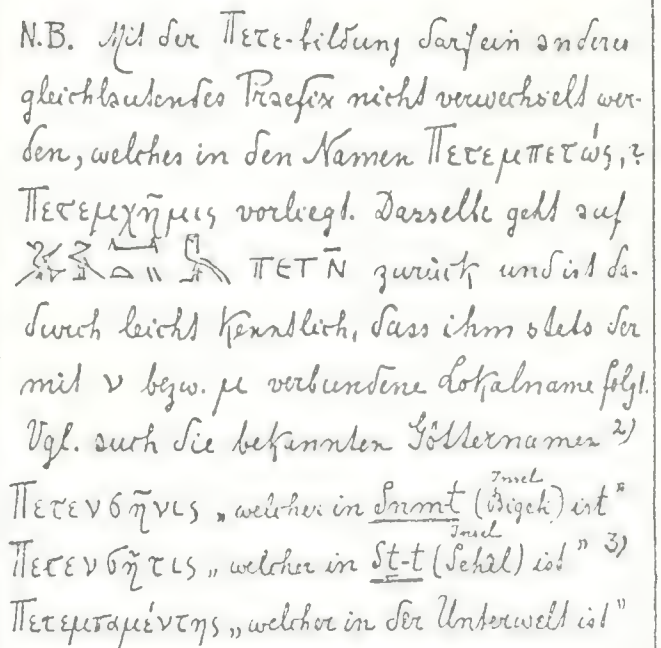 N.B. Mit der Πετε-bildung darf ein anderes
gleichlautendes Praefix nicht verwechselt wer-
den, welches in den Namen Πετεμπετώς, ?
Πετεμχῆμις vorliegt. Dasselbe geht auf
ΠΕΤN̄ zurück und ist da-
durch leicht kenntlich, dass ihm stets der
mit ν bezw. μ verbundene Lokalname folgt.
Vgl. auch die bekannten Götternamen 2)
Πετενσῆνις „welcher in Snmt (Insel Bigeh) ist"
Πετενσῆτις „welcher in St-t (Insel Sehêl) ist" 3)
Πετεμπαμέντης „welcher in der Unterwelt ist"